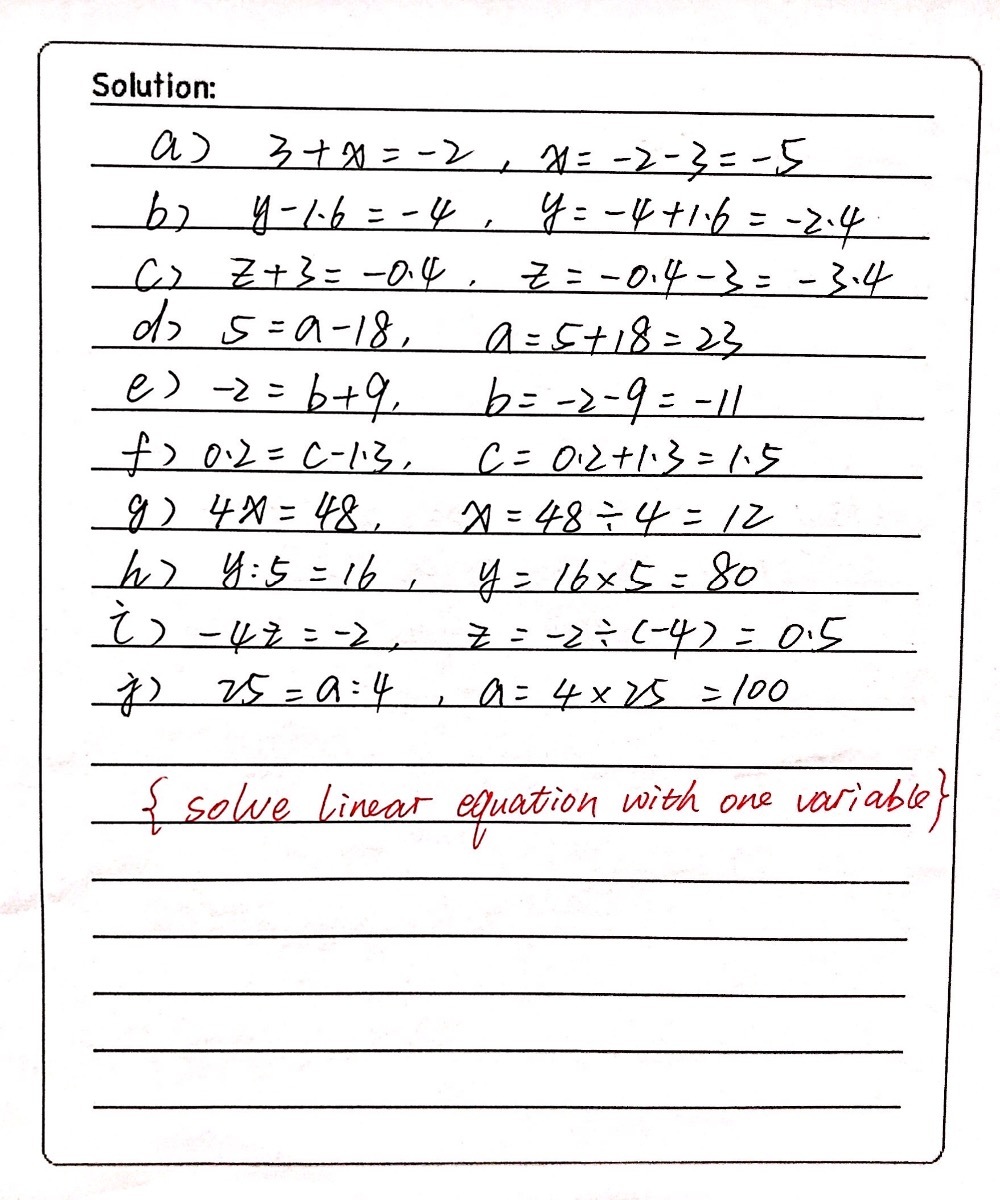 Solution:
a) 3+x=-2, x=-2-3=-5
b) y-1.6=-4, y=-4+1.6=-2.4
c) z+3=-0.4, z=-0.4-3=-3.4
d) 5=a-18, a=5+18=23
e) -2=b+9, b=-2-9=-11
f) 0.2=c-1.3, c=0.2+1.3=1.5
g) 4x=48, x=48÷4=12
h) y:5=16, y=16×5=80
i) -4z=-2, z=-2÷(-4)=0.5
j) 25=a:4, a=4×25=100
{solve linear equation with one variable}